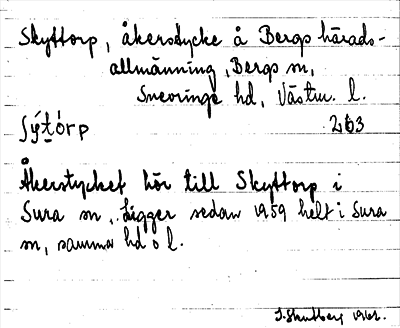 Skyttorp, åkerstycke å Bergs härads-
allmänning, Bergs sn,
Snevringe hd, Västm. l.
263
Åkerstycket hör till Skyttorp i
Sura sn. Ligger sedan 1959 helt i Sura
sn, samma hd o l.